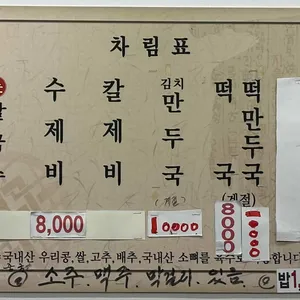 차림표
칼국수
수제비
칼제비
김치만두국
떡국
떡만두국
(계절)
8,000
10,000
8000
10000
국내산 우리콩, 쌀, 고추, 배추, 국내산 소뼈를 육수로
소주. 맥주. 막걸리 있음.
밥1,